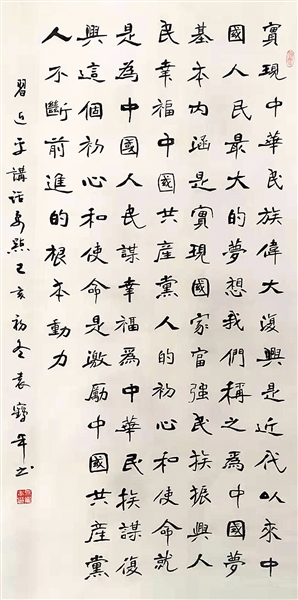 實現中華民族偉大復興是近代以來中
國人民最大的夢想我們稱之爲中國夢
基本内涵是實現國家富强民族振興人
民幸福中國共產黨人的初心和使命就
是為中國人民謀幸福爲中華民族謀復
興這個初心和使命是激勵中國共產黨
人不斷前進的根本動力
習近平講話要點己亥初冬袁鶴年书